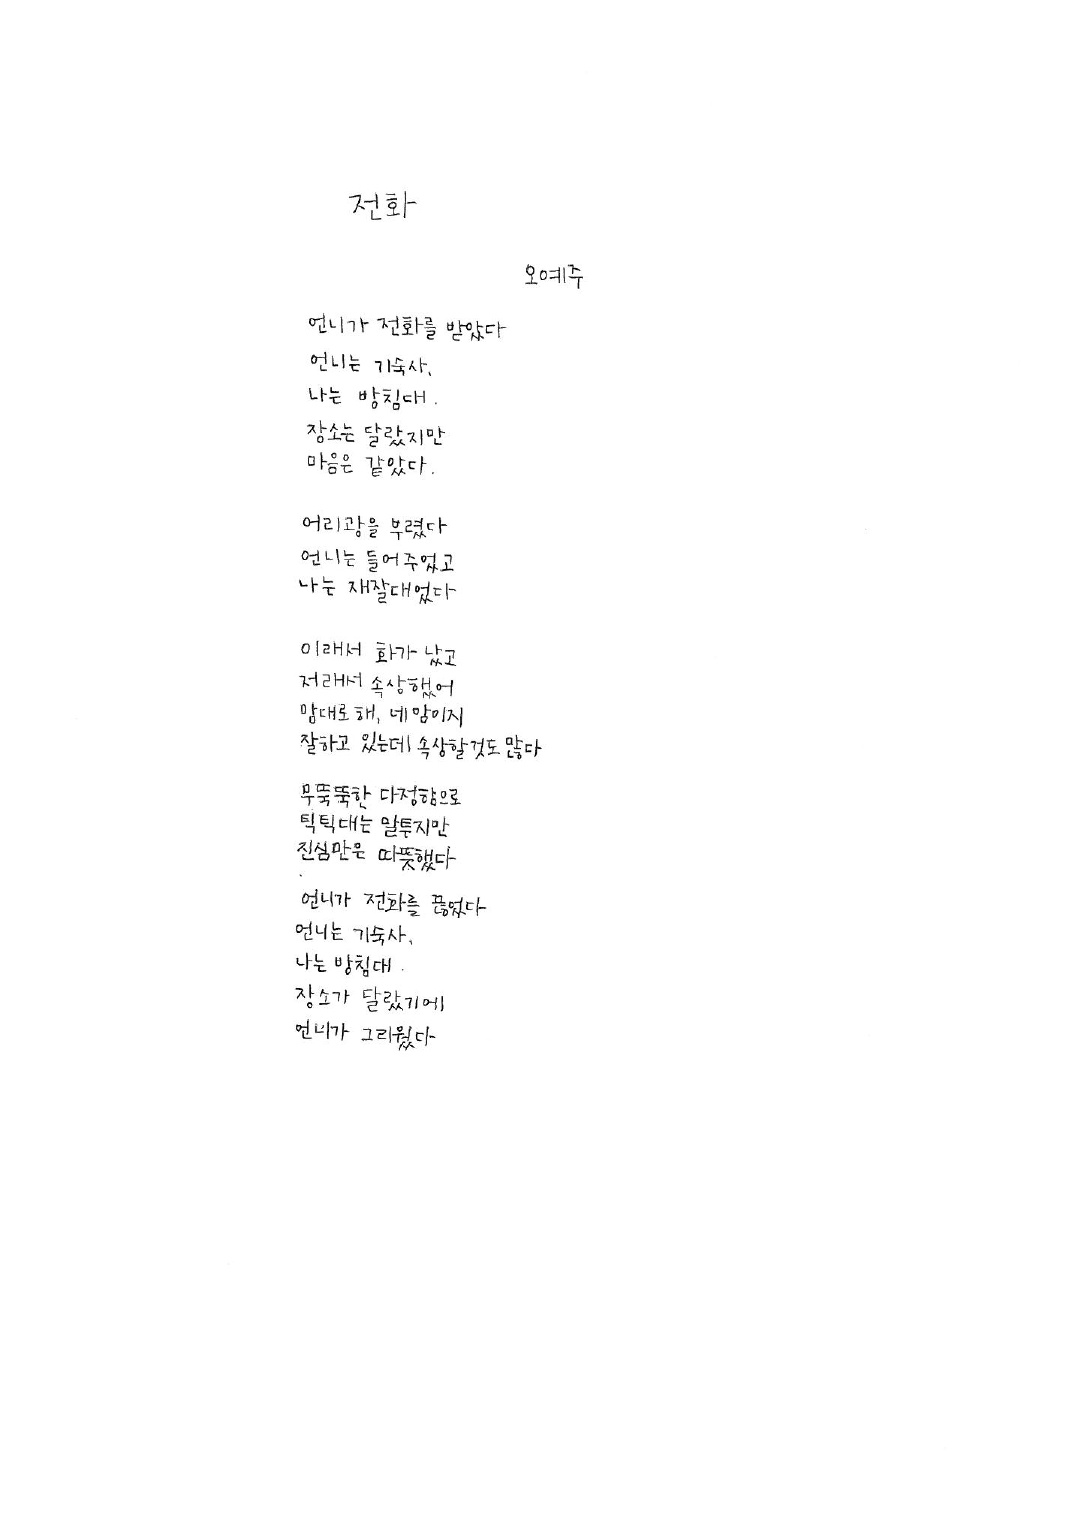 전화
오예주
언니가 전화를 받았다
언니는 기숙사,
나는 방침대.
장소는 달랐지만
마음은 같았다.
어리광을 부렸다
언니는 들어주었고
나는 재잘대었다
이래서 화가 났고
저래서 속상했어
맘대로해, 네맘이지
잘하고 있는데 속상할것도 많다
무뚝뚝한 다정함으로
틱틱대는 말투지만
진심만은 따뜻했다
언니가 전화를 끊었다
언니는 기숙사,
나는 방침대.
장소가 달랐기에
언니가 그리웠다